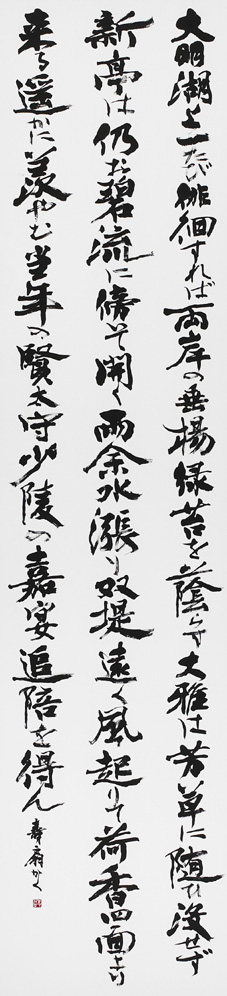 大明湖上一たび徘徊すれば両岸の垂楊緑苔を蔭らす大雅は芳草に随ひ没せず
新亭は仍お碧流に傍そて開く雨余水漲り双堤遠く風起りて荷香四面より
来る遥かに羨やむ当年の賢太守少陵の嘉宴追陪を得ん
寿扇かく